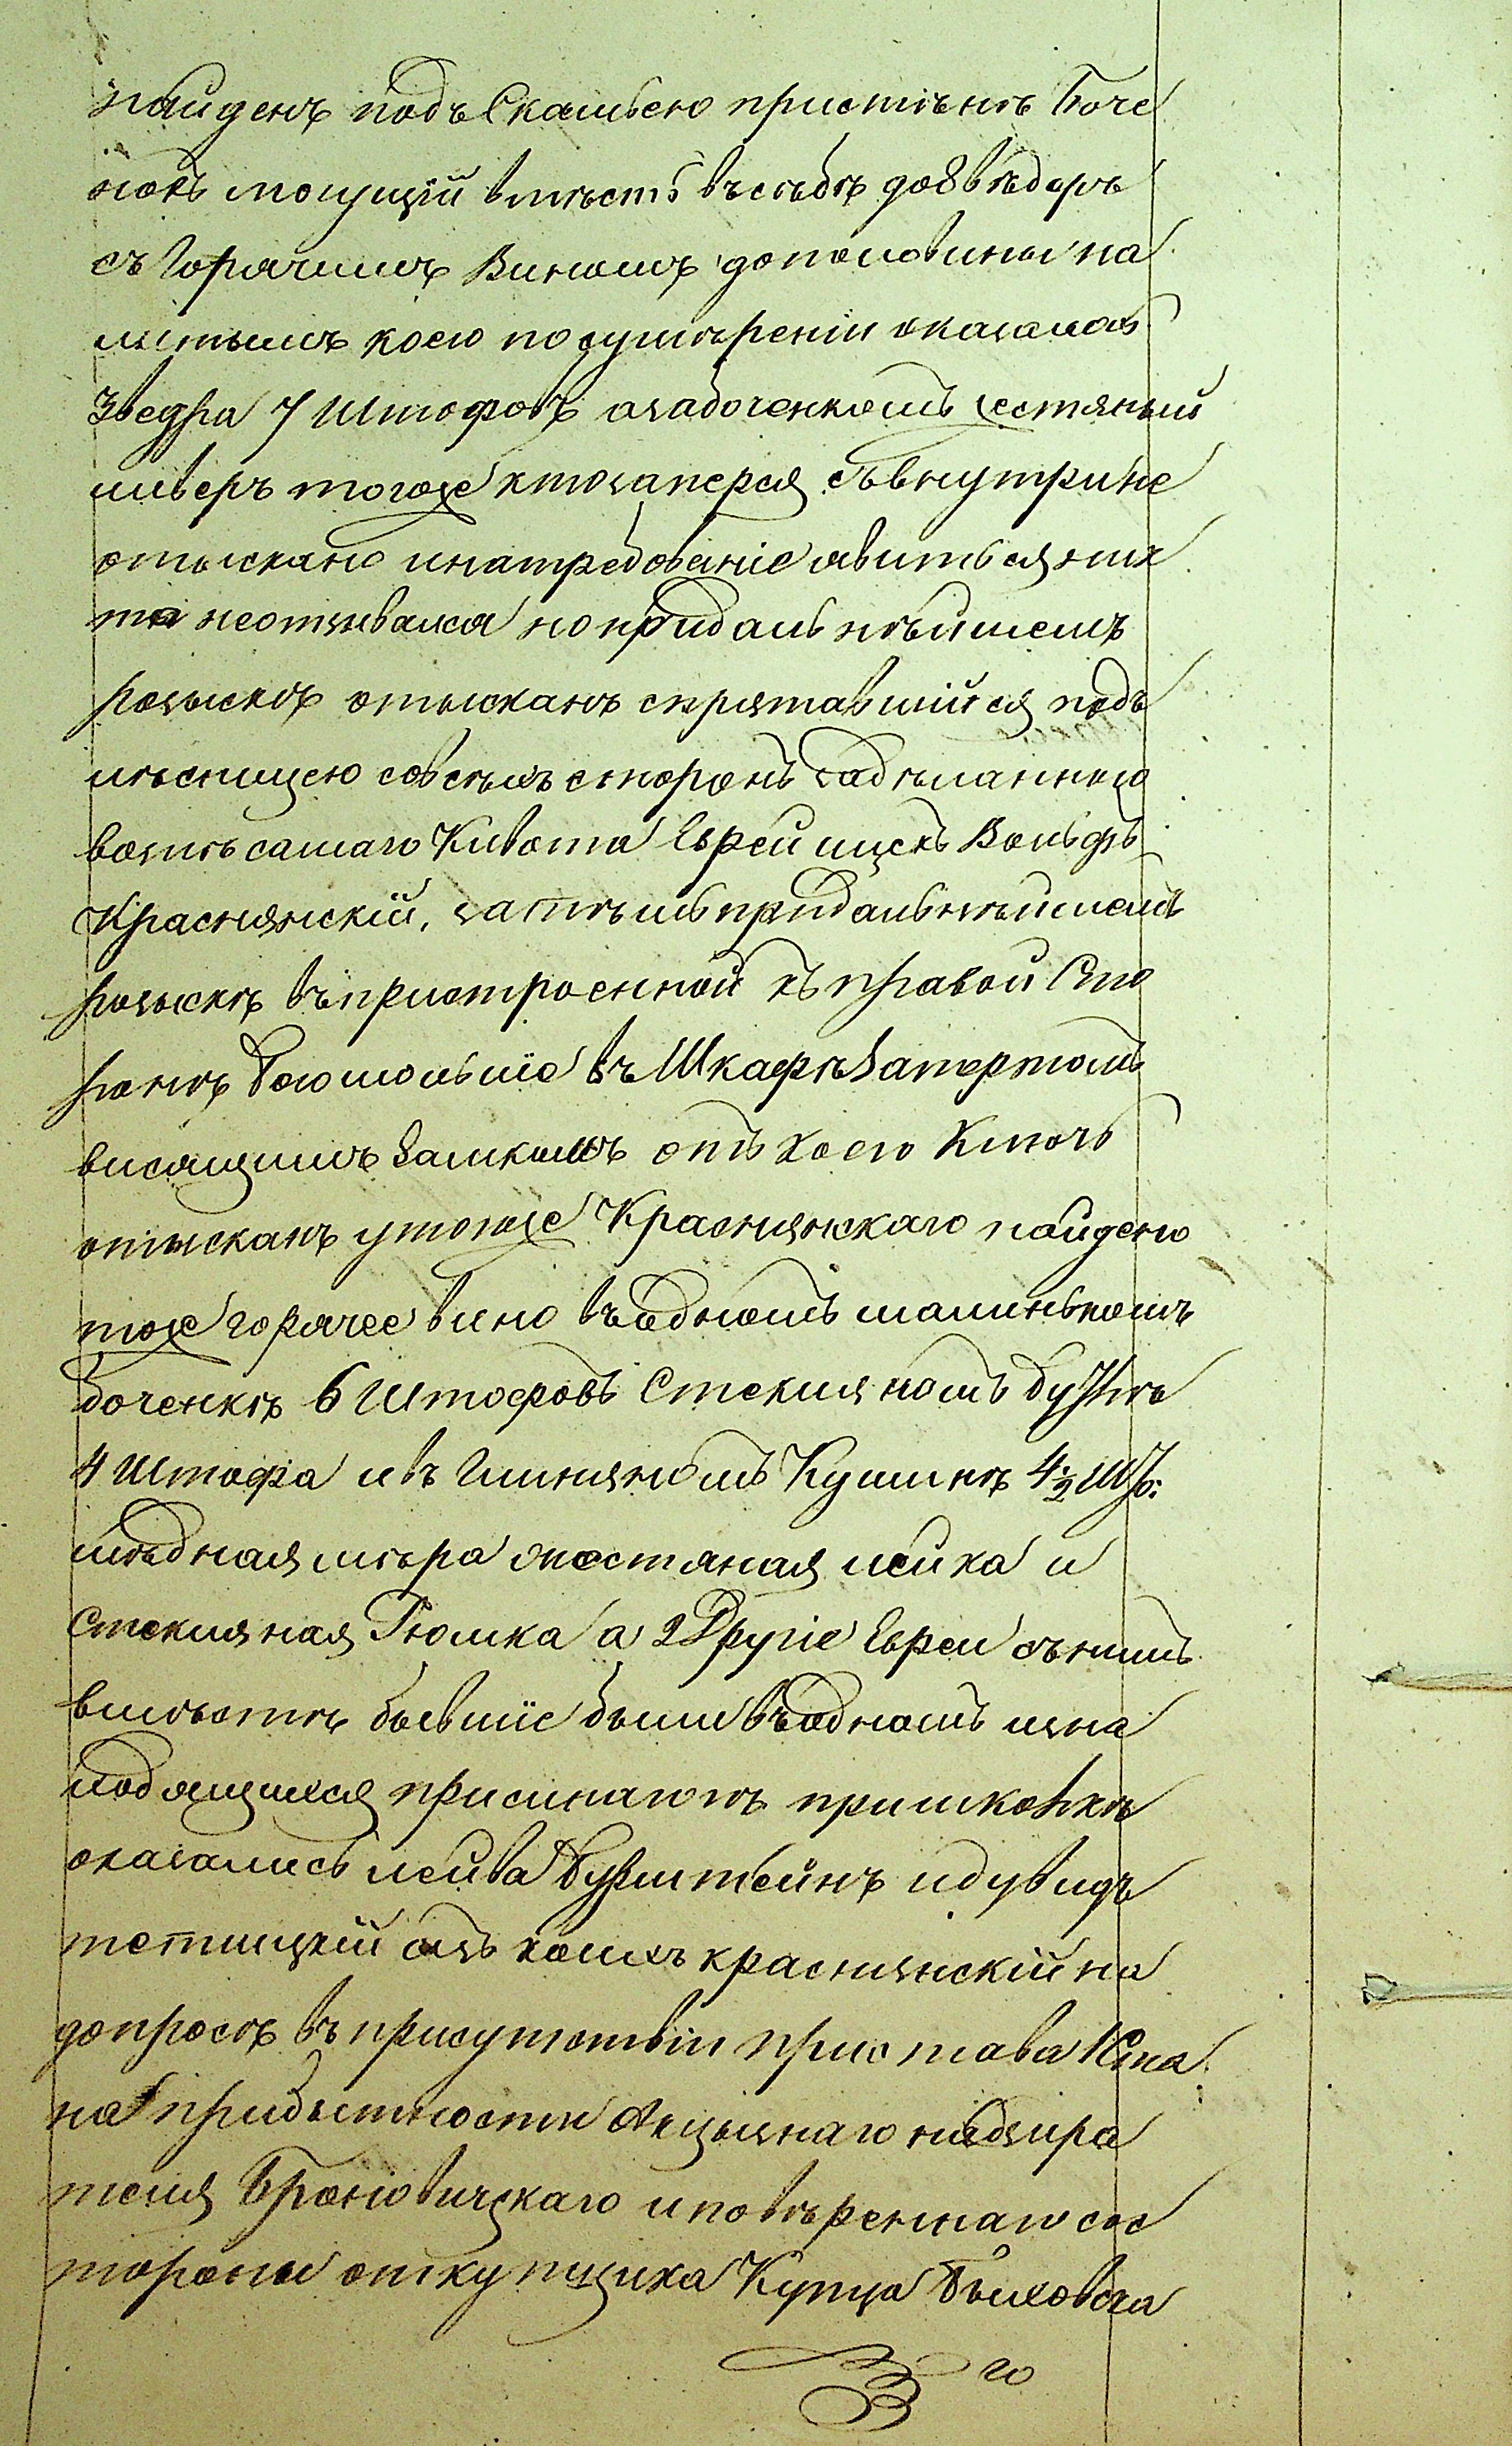 найденъ подъ Скамьею пристѣнѣ Боче
нокъ могущій вмѣстѣ въсѣбѣ до8 вѣдеръ
съ Горячимъ Виномъ дополовины на
литымъ коего посумѣреніи оказалось
3ведра 7 Штофовъ азабоченкомъ жестяный
ливеръ тогоже ктозаперся съвнутри не
отыскано инатребованіе явиться ник
то неотзывался но придальнѣйшемъ
розыскѣ отысканъ спрятавшійся подъ
лѣсницею совсѣхъ сторонъ задѣланною
возлѣ самаго Кивота Еврей ицекъ Вольфъ
Краснянскій, затѣмъ придальнѣйшемъ
розыскѣ въпристроенной къ правой Сто
ронѣ Богомольне въ Шкафѣ Запертомъ
висящимъ Замкомъ отъ коего Ключь
отысканъ утогоже Краснянскаго найдено
тоже горячее вино въодномъ малинькомъ
боченкѣ 6 Штофовъ Стекляномъ бутлѣ
4 Штофа и въ Глиняномъ Кушинѣ 4½ Шт:
мѣдная мѣра жестяная лейка и
Стекляная Рюмка а 2 Другіе Евреи съ нимъ
вмѣстѣ бывшіе были въодномъ изна
ходящихся присинагогѣ пришколкѣ
оказались лейва Бурштейнъ идувидъ
тетицкій изъ коихъ краснянскій на
допросѣ въ присутствіи пристава Стана
на прибытности Акцызнаго надзира
теля Броновицкаго и повѣреннаго сос
тороны откупщика Купца Быховска
го